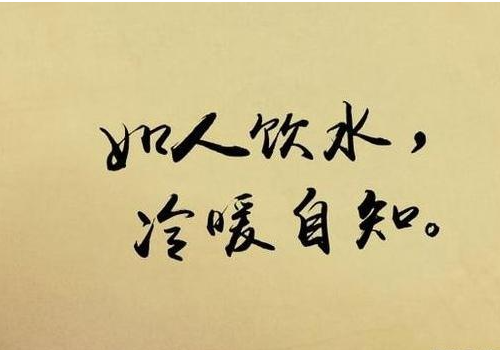 如人饮水，
冷暖自知。